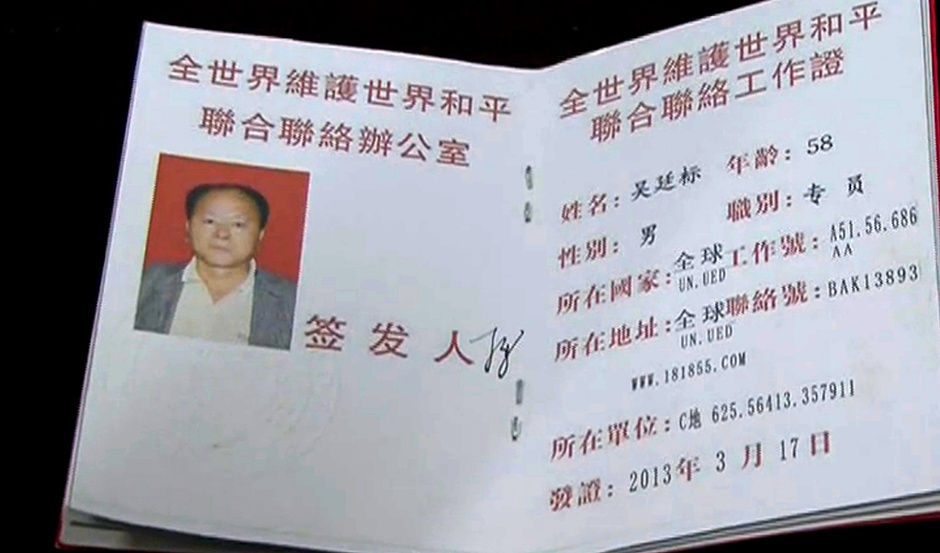 全世界維護世界和平
聯合聯絡辦公室
签发人
全世界維護世界和平
聯合聯絡工作證
姓名:吴廷标 年齡:58
性别:男 職别:专员
所在國家:全球 UN.UED 工作號:A51.56.686 AA
所在地址:全球 UN.UED 聯絡號:BAK13893
WWW.181855.COM
所在單位:C地 625.56413.357911
發證:2013年3月17日